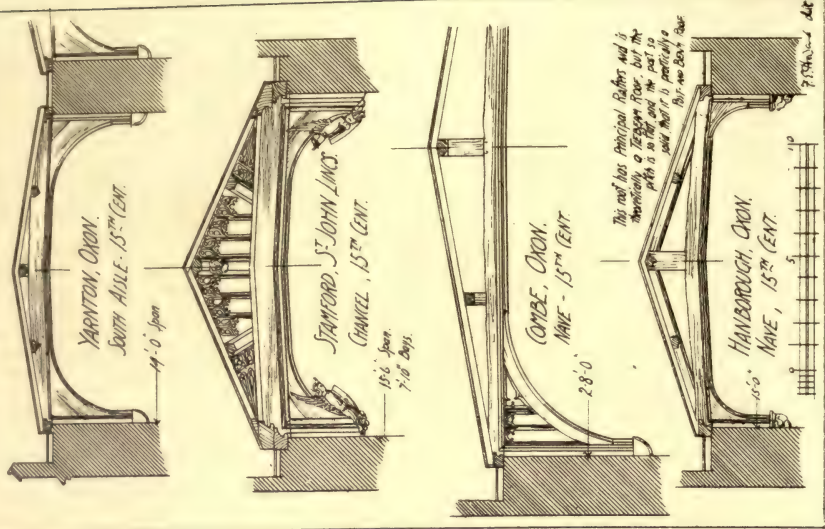 YARNTON, OXON.
SOUTH AISLE - 15TH CENT.
14'-0 Span
STAMFORD, ST JOHN LINCS.
CHANCEL, 15TH CENT.
15'-6 Span.
7'-10" Bays.
COMBE, OXON.
NAVE - 15TH CENT.
28'-0"
This roof has Principal Rafters and is
theoretically a TIEBEAM ROOF, but the
pitch is so flat, and the post so
solid that it is practically a
POST AND BEAM ROOF
HANBOROUGH, OXON.
NAVE, 15TH CENT.
15'-0"
5
10
del